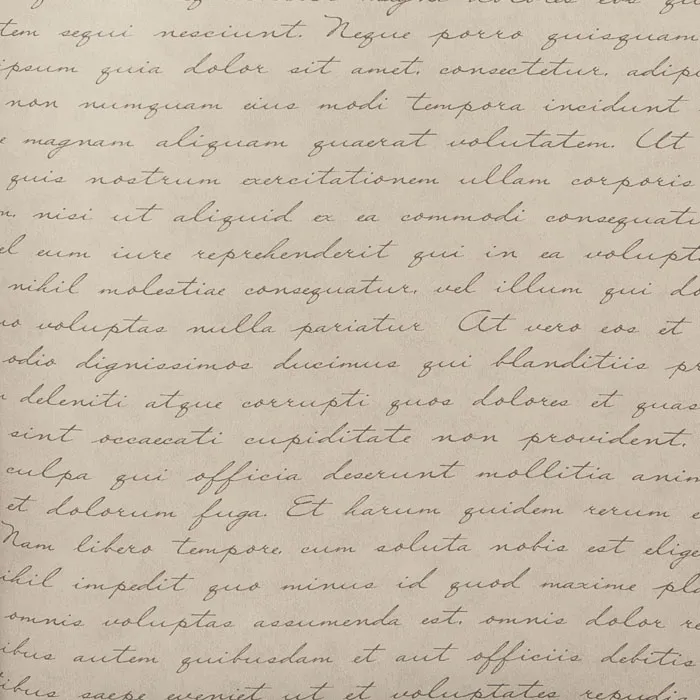 magni dolores eos qui
tem sequi nesciunt. Neque porro quisquam
ipsum quia dolor sit amet, consectetur, adipi
non numquam eius modi tempora incidunt
e magnam aliquam quaerat volutatem. Ut
quis nostrum exercitationem ullam corporis
m, nisi ut aliquid ex ea commodi consequatu
el eum iure reprehenderit qui in ea volupta
nihil molestiae consequatur, vel illum qui do
uo voluptas nulla pariatur At vero eos et
odio dignissimos ducimus qui blanditiis pr
deleniti atque corrupti quos dolores et quas
sint occaecati cupiditate non provident,
culpa qui officia deserunt mollitia anim
et dolorum fuga. Et harum quidem rerum e
Nam libero tempore, cum soluta nobis est elige
ihil impedit quo minus id quod maxime pla
omnis voluptas assumenda est, omnis dolor re
ibus autem quibusdam et aut officiis debitis
ibus saepe eveniet ut et voluptates repudia